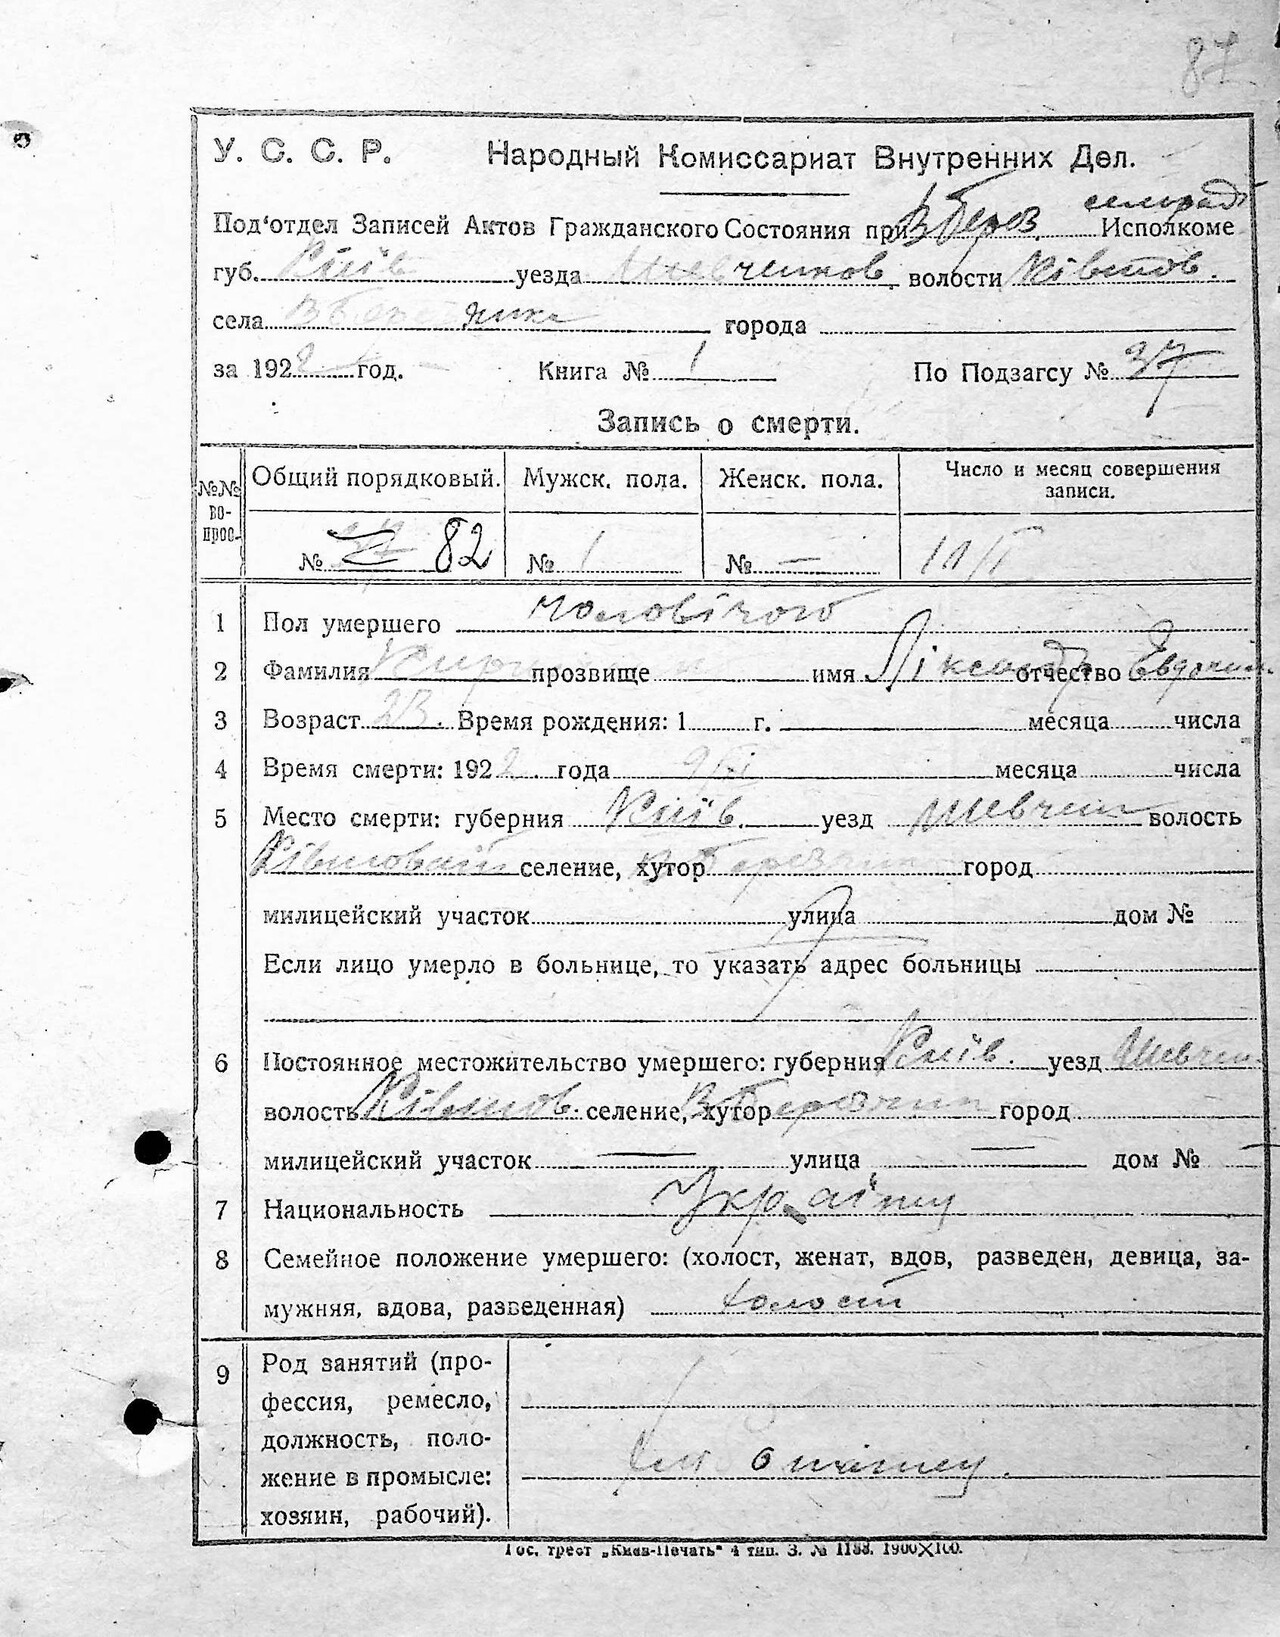 87
У. С. С. Р. Народный Комиссариат Внутренних Дел.
Под'отдел Записей Актов Гражданского Состояния при В Берез. сельрад Исполкоме
губ. Київ уезда Шевченков. волости Ківшов.
села города
за 1922 год. Книга № 1 По Подзагсу № 37
Запись о смерти.
№№ вопрос. Общий порядковый. Мужск. пола. Женск. пола. Число и месяц совершения записи.
№ 82 № 1 № —
1 Пол умершего чоловічого
2 Фамилия прозвище имя Ліксандр отчество Евдоким.
3 Возраст 23. Время рождения: 1 г. месяца числа
4 Время смерти: 1922 года месяца числа
5 Место смерти: губерния Київ. уезд Шевчен волость
Ківшоват селение, хутор В Березянка город
милицейский участок улица дом №
Если лицо умерло в больнице, то указать адрес больницы
6 Постоянное местожительство умершего: губерния Київ. уезд Шевчен.
волость Ківшов. селение, хутор город
милицейский участок — улица — дом № —
7 Национальность Україн
8 Семейное положение умершего: (холост, женат, вдов, разведен, девица, за-
мужняя, вдова, разведенная) холост
9 Род занятий (про-
фессия, ремесло,
должность, поло-
жение в промысле:
хозяин, рабочий).
Гос. трест „Киев-Печать" 4 тип. З. № 1188. 1900×100.